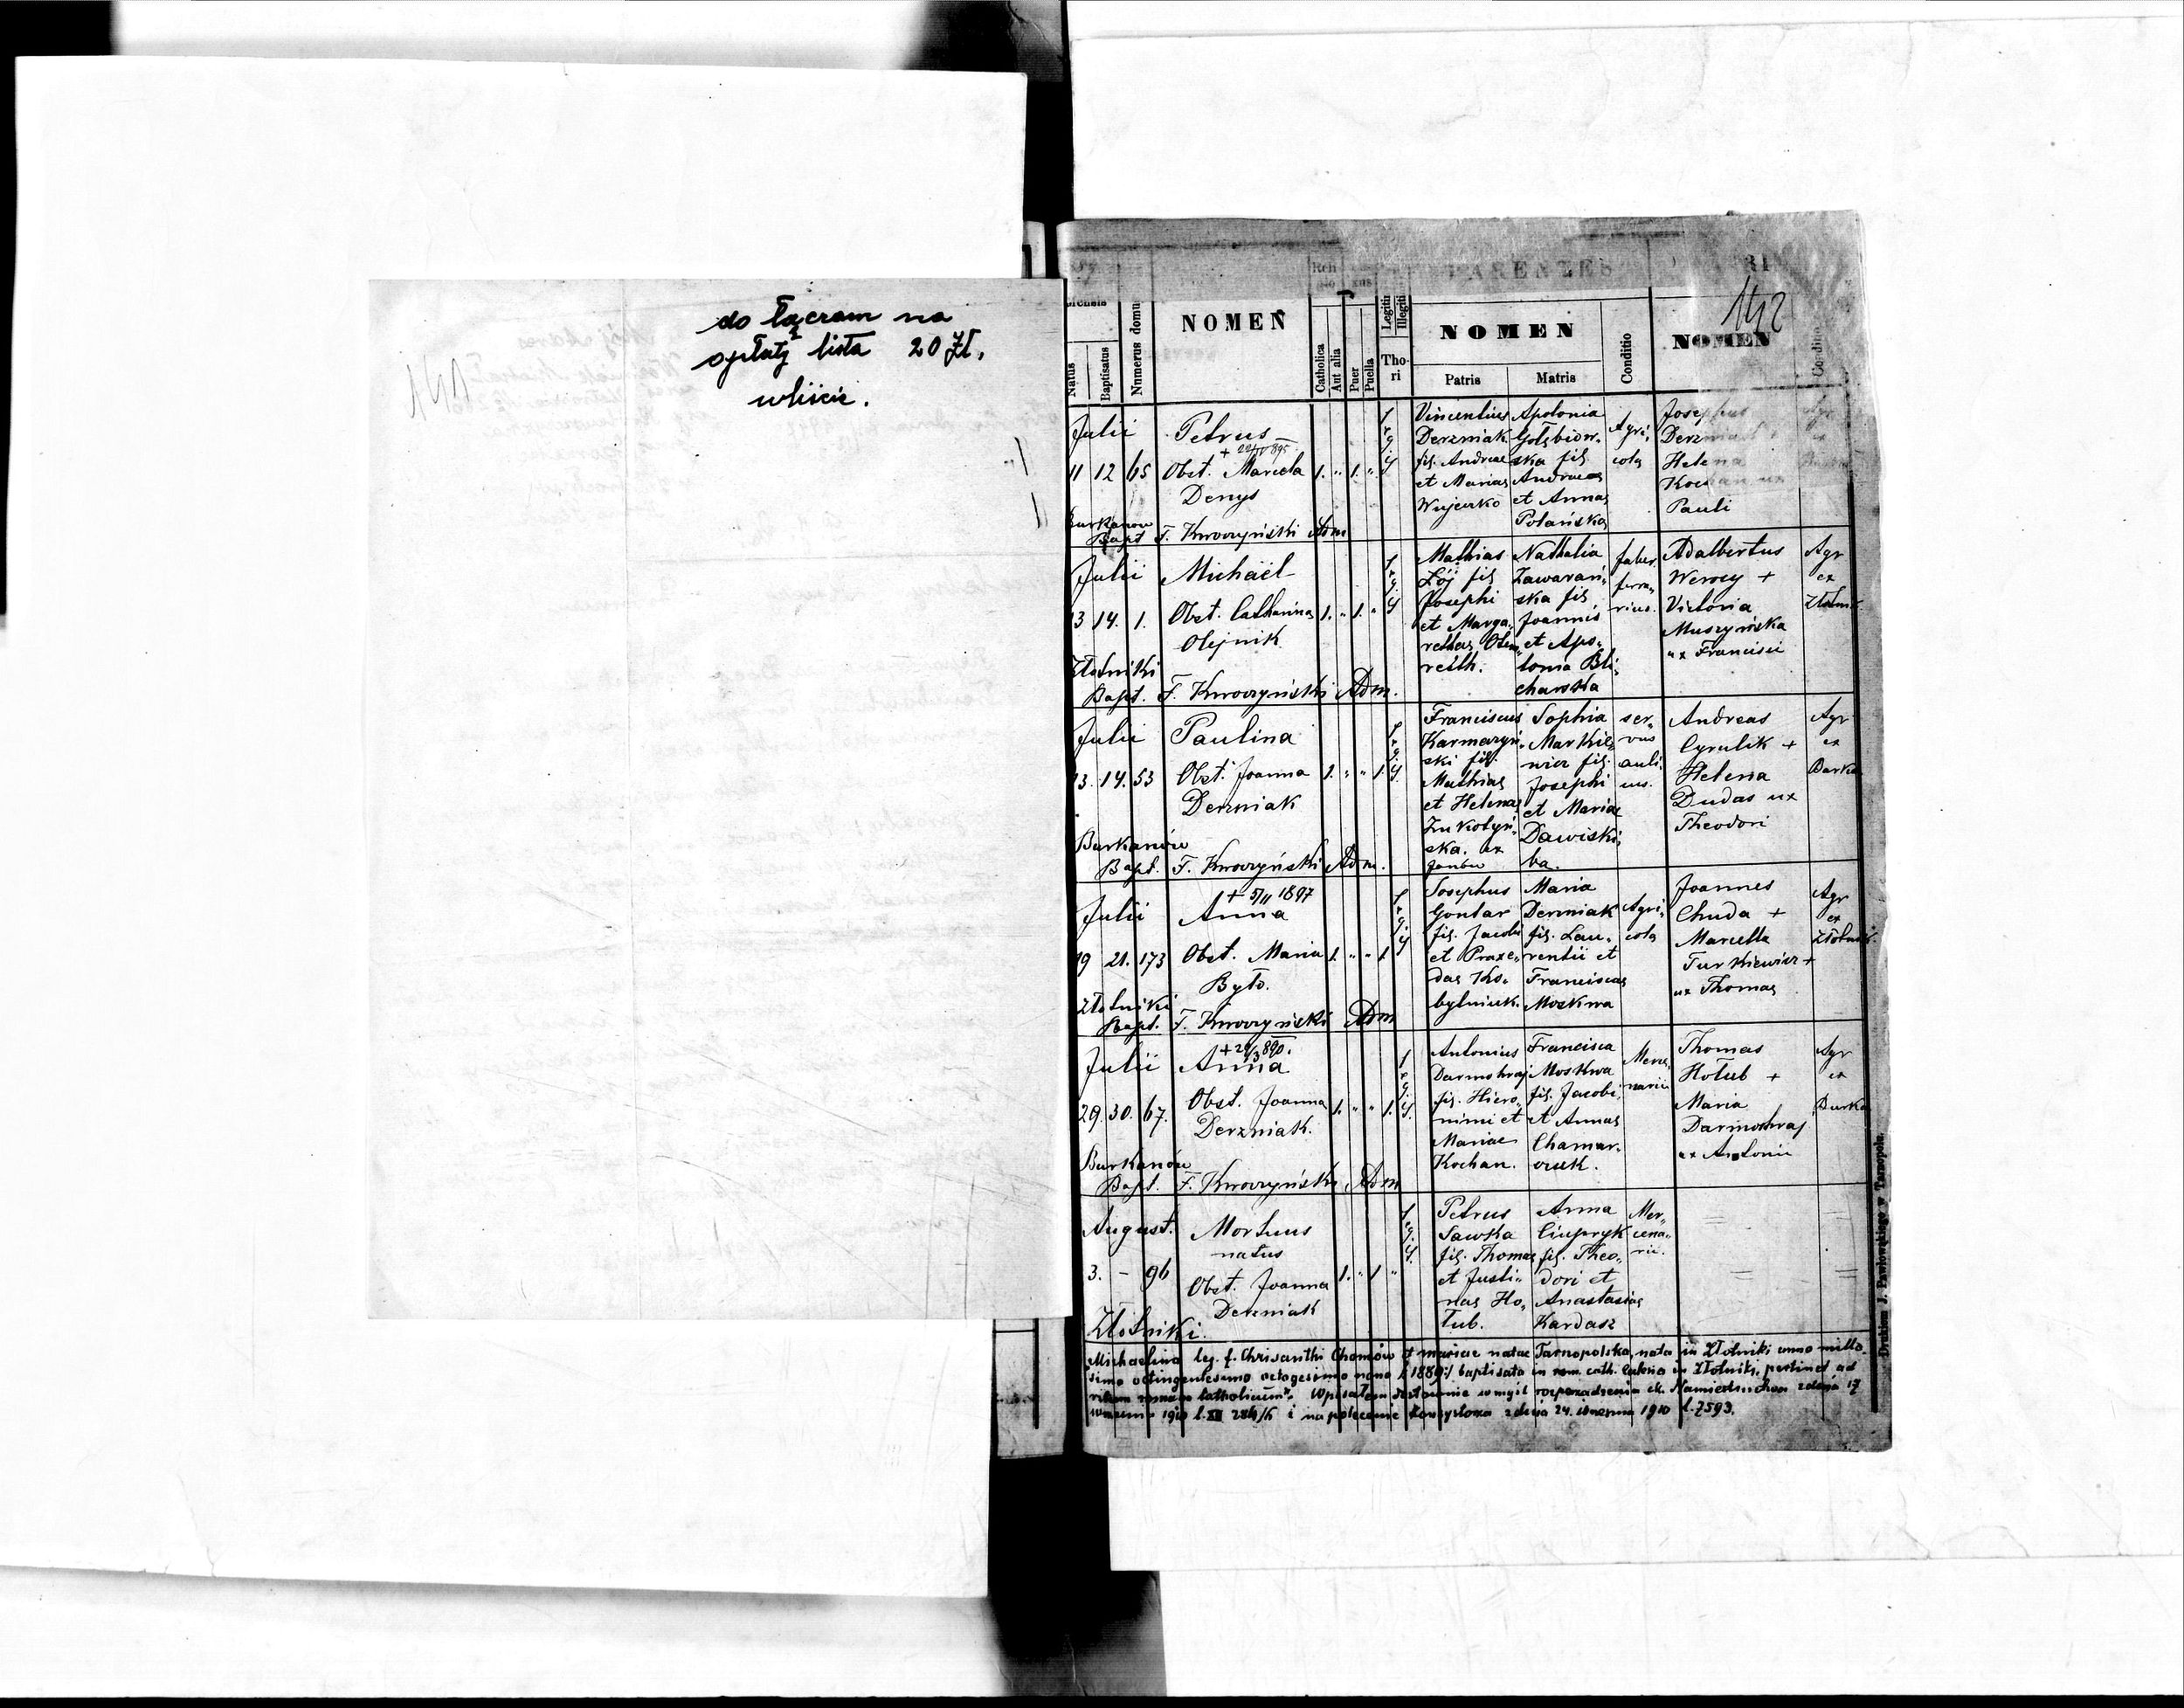 do łączam na
opłatę lista 20 Zł,
wliście.
141
142
PARENTES
NOMEN
Natus
Baptisatus
Numerus domu
Catholica
Aut alia
Puer
Puella
Legiti
Illegiti
Tho-
ri
NOMEN
Patris
Matris
Conditio
NOMEN
Conditio
Julii
11 12 65
Burkanow
Petrus
Obst. Marcela
Denys
Bapt F. Kwoczyński Adm
1. " 1. "
Vincentius
Derzniak
fil. Andreae
et Mariae
Wujcerko
Apolonia
Gołębiow-
ska fil.
Andreae
et Annae
Polańska
Agri-
cola
Josephus
Derzniak
Helena
Pauli
Julii
13 14. 1.
Złotniki
Michaël
Obst. Catharina
Olejnik
Bapt. F. Kwoczyński Adm.
1. " 1. "
Mathias
Łój fil
Josephi
et Marga-
rethae
reith.
Nathalia
Zawarań-
ska fil
Joannis
et Apo-
lonia Bli-
charska
faber
ferra-
rius.
Adalbertus
Werscy +
Victoria
Muszyńska
ux Francisci
Agr
ex
Złotnik.
Julii
13. 14. 53
Burkanów
Paulina
Obst. Joanna
Derzniak
Bapt. F. Kwoczyński Adm.
1. " " 1.
Franciscus
Karmazyń-
ski fil.
Mathias
et Helena
ska. ex
Sophia
Markie-
wicz fil.
Josephi
et Mariae
Dawiski-
ba.
ser-
vus
auli-
cus.
Andreas
Cyrulik +
Helena
Dudas ux
Theodori
Agr
ex
Burka
Julii
19 21. 173
Złotniki
+ 5/11 1897
Anna
Obst. Maria
Było.
Bapt. F. Kwoczyński Adm
1. " " 1
Josephus
Gontar
fil. Jacobi
et Praxe-
das Ko-
bylniuk.
Maria
Derzniak
fil. Lau-
rentii et
Franciscae
Moskwa
Agri-
cola
Joannes
Chuda +
Marcella
Turkiewicz +
ux Thomas
Agr
ex
Złotnik.
Julii
29. 30. 67.
Burkanów
Anna
Obst. Joanna
Derzniak.
Bapt. F. Kwoczyński Adm
1. " " 1.
Antonius
Darmohraj
fil. Hiero-
nimi et
Mariae
Kochan.
Francisca
Moskwa
fil. Jacobi
et Annae
Chamar-
czuk.
Merce-
narii
Thomas
Hołub +
Maria
Darmohraj
ux Antonii
Agr
ex
Burka
August.
3. - 96
Złotniki.
Mortuus
natus
Obst. Joanna
Derzniak
1. " 1 "
Petrus
Sawka
fil. Thomae
et Justi-
nae Ho-
łub.
Anna
Ciupryk
fil. Theo-
dori et
Anastasiae
Kardasz
Mer-
cena-
rii.
Michaelina leg. f. Chrisanthi Chomów et mariae natae Tarnopolska, nata in Złotniki anno mille-
simo octingentesimo octogesimo nono /:1889:/ baptisata in rom. cath. Ecclesia in Złotniki, pertinet ad
ritum romano catholicum". Wpisałem dosłownie w myśl rozporządzenia ck. Namiestnictwa z dnia 17
września 1910 l. XII 284/6 i na polecenie Konsystorza z dnia 24. września 1910 l. 7593.
Drukiem J. Pawłowskiego w Tarnopolu.